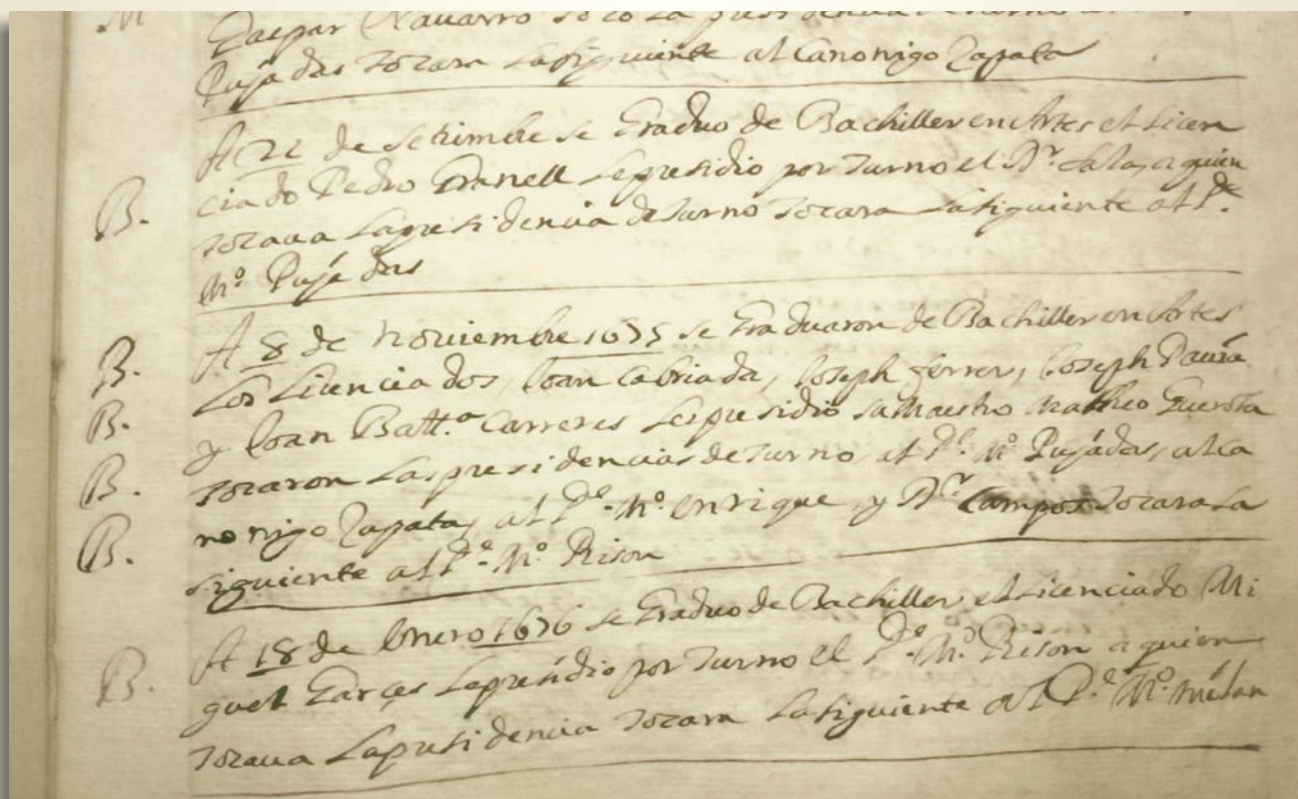 M Gaspar Navarro toco la presidencia
Pujadas tocara la siguiente al Canonigo Zapata
A 22 de Setiembre se Graduo de Bachiller en Artes el Licen
B. ciado Pedro Granell le presidio por turno el Dr. Sala, a quien
tocaua la presidencia de turno tocara la siguiente al Pe.
Mº Pujadas
B. A 8 de Nouiembre 1675 se Graduaron de Bachiller en Artes
B. Los Licenciados, Joan Cabriada, Joseph ferrer, Joseph Pauia
y Joan Batt.ª Carreres les presidio su Maestro Matheo Guerola
B. tocaron las presidencias de turno, al Pe. Mº Pujadas, al Ca
B. nonigo Zapata, al Pe. Mº. Enrique y Dr. Campos tocara la
siguiente al Pe. Mº Rison
A 18 de Enero 1676 se Graduo de Bachiller el Licenciado Mi
B. guel Garçes le presidio por turno el Pe. Mº. Rison a quien
tocaua la presidencia tocara la siguiente al Pe. Mº milan